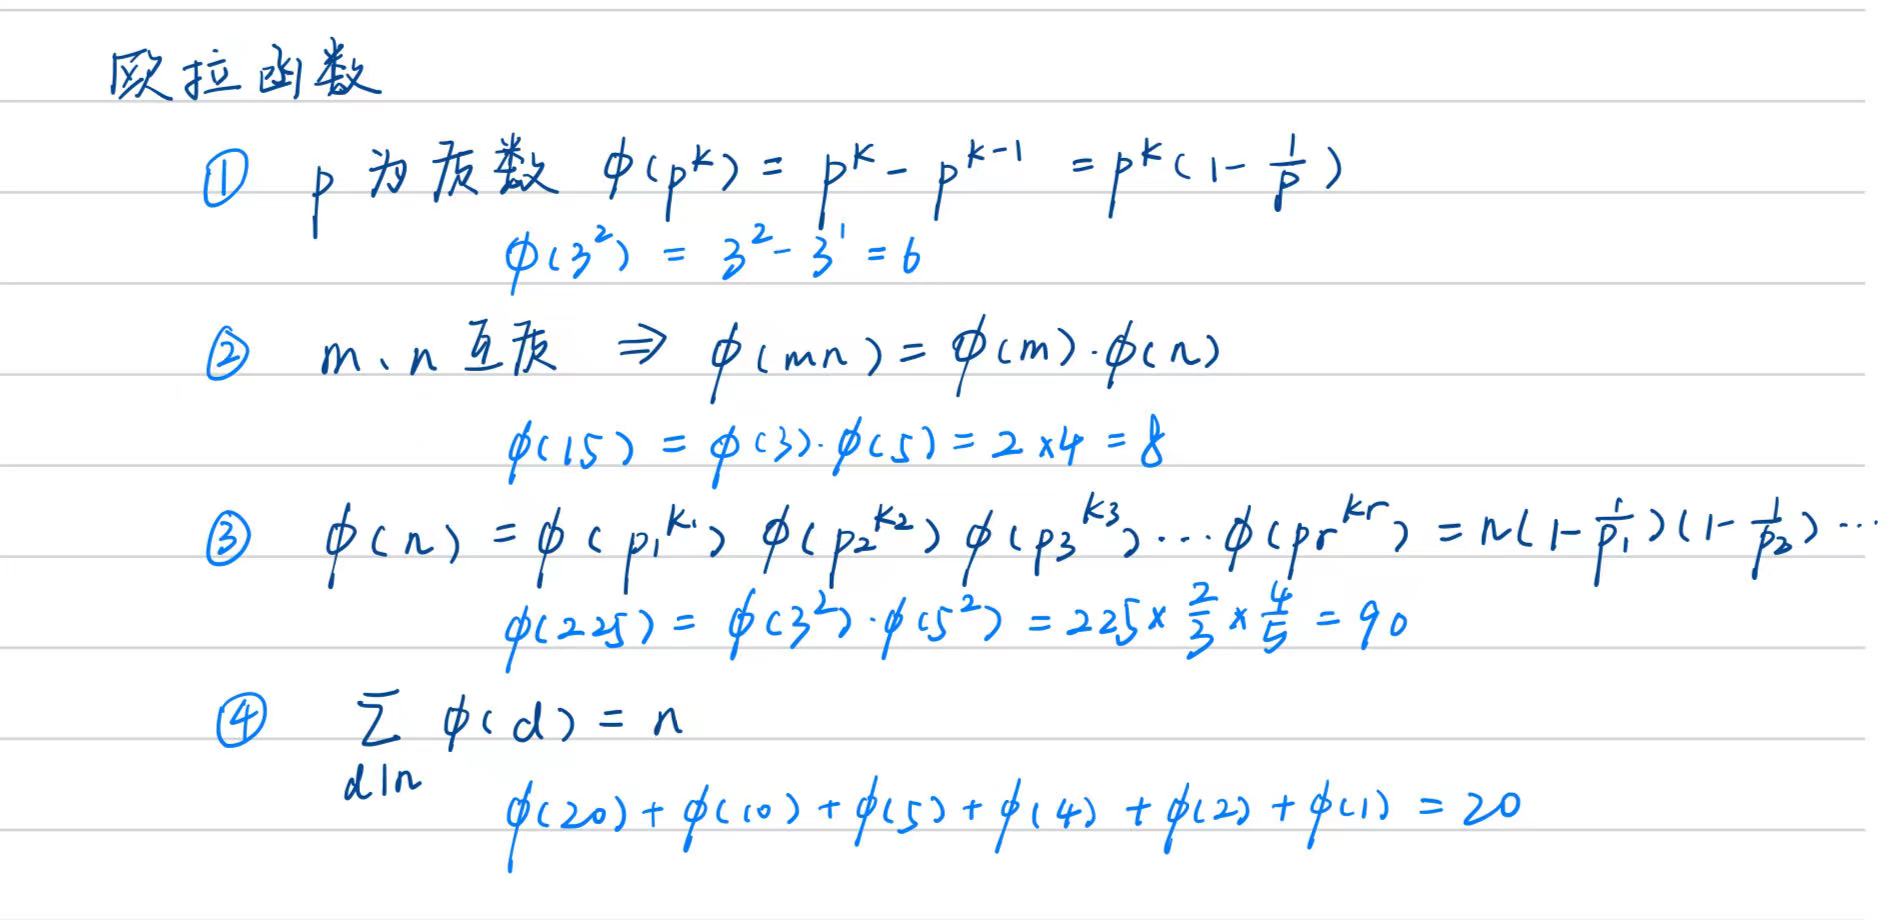 欧拉函数
① p 为质数 ϕ(p^k) = p^k - p^{k-1} = p^k(1 - 1/p)
ϕ(3^2) = 3^2 - 3^1 = 6
② m、n 互质 ⇒ ϕ(mn) = ϕ(m)·ϕ(n)
ϕ(15) = ϕ(3)·ϕ(5) = 2×4 = 8
③ ϕ(n) = ϕ(p_1^{k_1}) ϕ(p_2^{k_2}) ϕ(p_3^{k_3}) ··· ϕ(p_r^{k_r}) = n(1 - 1/p_1)(1 - 1/p_2) ···
ϕ(225) = ϕ(3^2)·ϕ(5^2) = 225 × 2/3 × 4/5 = 90
④ ∑_{d|n} ϕ(d) = n
ϕ(20) + ϕ(10) + ϕ(5) + ϕ(4) + ϕ(2) + ϕ(1) = 20